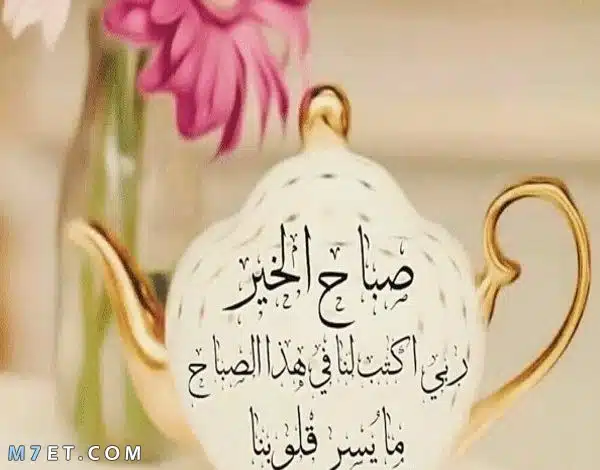 صباح الخير
ربي اكتب لنا في هذا الصباح
ما يُسر قلوبنا
M7ET.COM